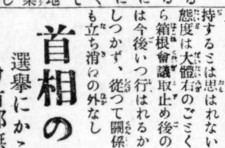 持するとは思はれない
態度は大體右のごとく
ら箱根會議取止め後の
は今後いつ行はれるか
しつかず、從つて關係
も立ち消の外なし
首相の
選擧にか